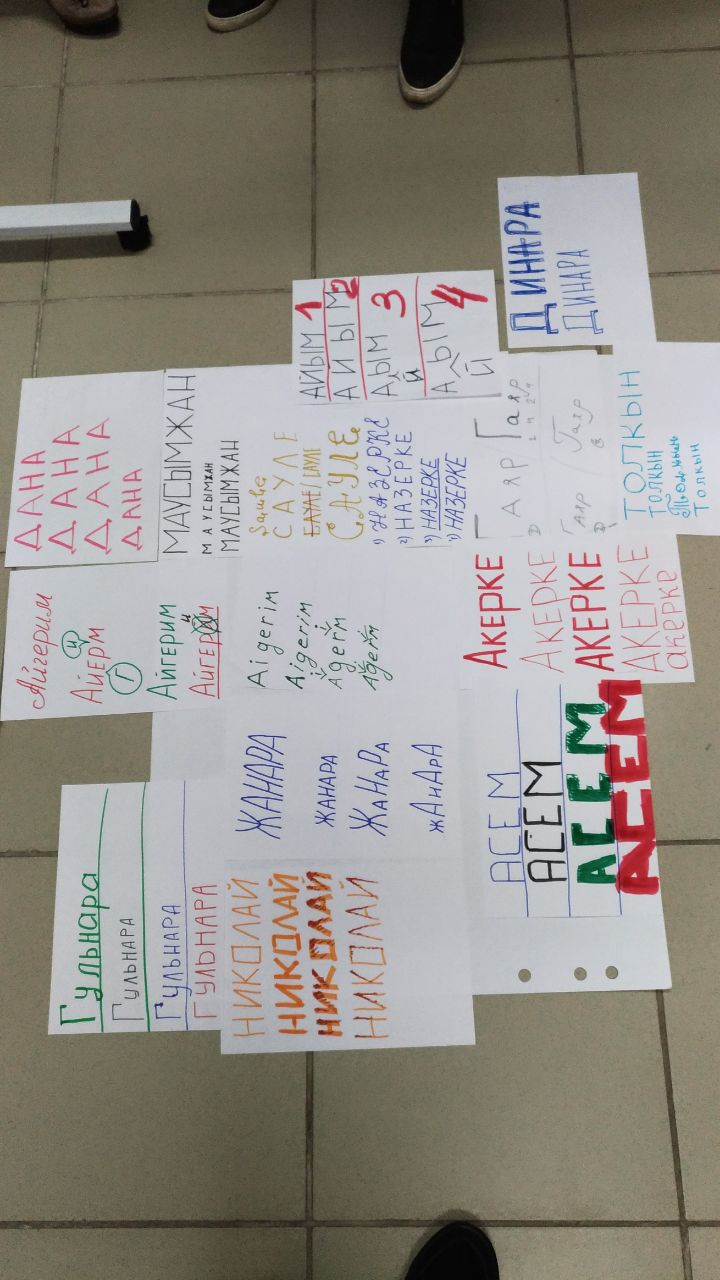 ДИНАРА
ДИНАРА
АЙЫМ 1
АЙЫМ 2
АЫМ 3
Й
АЫМ 4
Й
ДАНА
ДАНА
ДАНА
ДАНА
МАУСЫМЖАН
МАУСЫМЖАН
МАУСЫМЖАН
Сауле
САУЛЕ
САУЛЕ
САУЛЕ
1) НАЗЕРКЕ
2) НАЗЕРКЕ
3) НАЗЕРКЕ
4) НАЗЕРКЕ
ГАЯР
Гаяр
Гаяр
Гаяр
ТОЛКЫН
ТОЛКЫН
Толкын
Толкын
Айгерим
и
Айерм
Г
Айгерим
и
Айгер
Aigerim
Aigerim
i
Agerim
Agerim
АКЕРКЕ
АКЕРКЕ
АКЕРКЕ
АКЕРКЕ
акерке
ЖАНАРА
ЖАНАРА
ЖАНАРА
ЖАНАРА
АСЕМ
АСЕМ
АСЕМ
АСЕМ
Гульнара
Гульнара
Гульнара
ГУЛЬНАРА
НИКОЛАЙ
НИКОЛАЙ
НИКОЛАЙ
НИКОЛАЙ